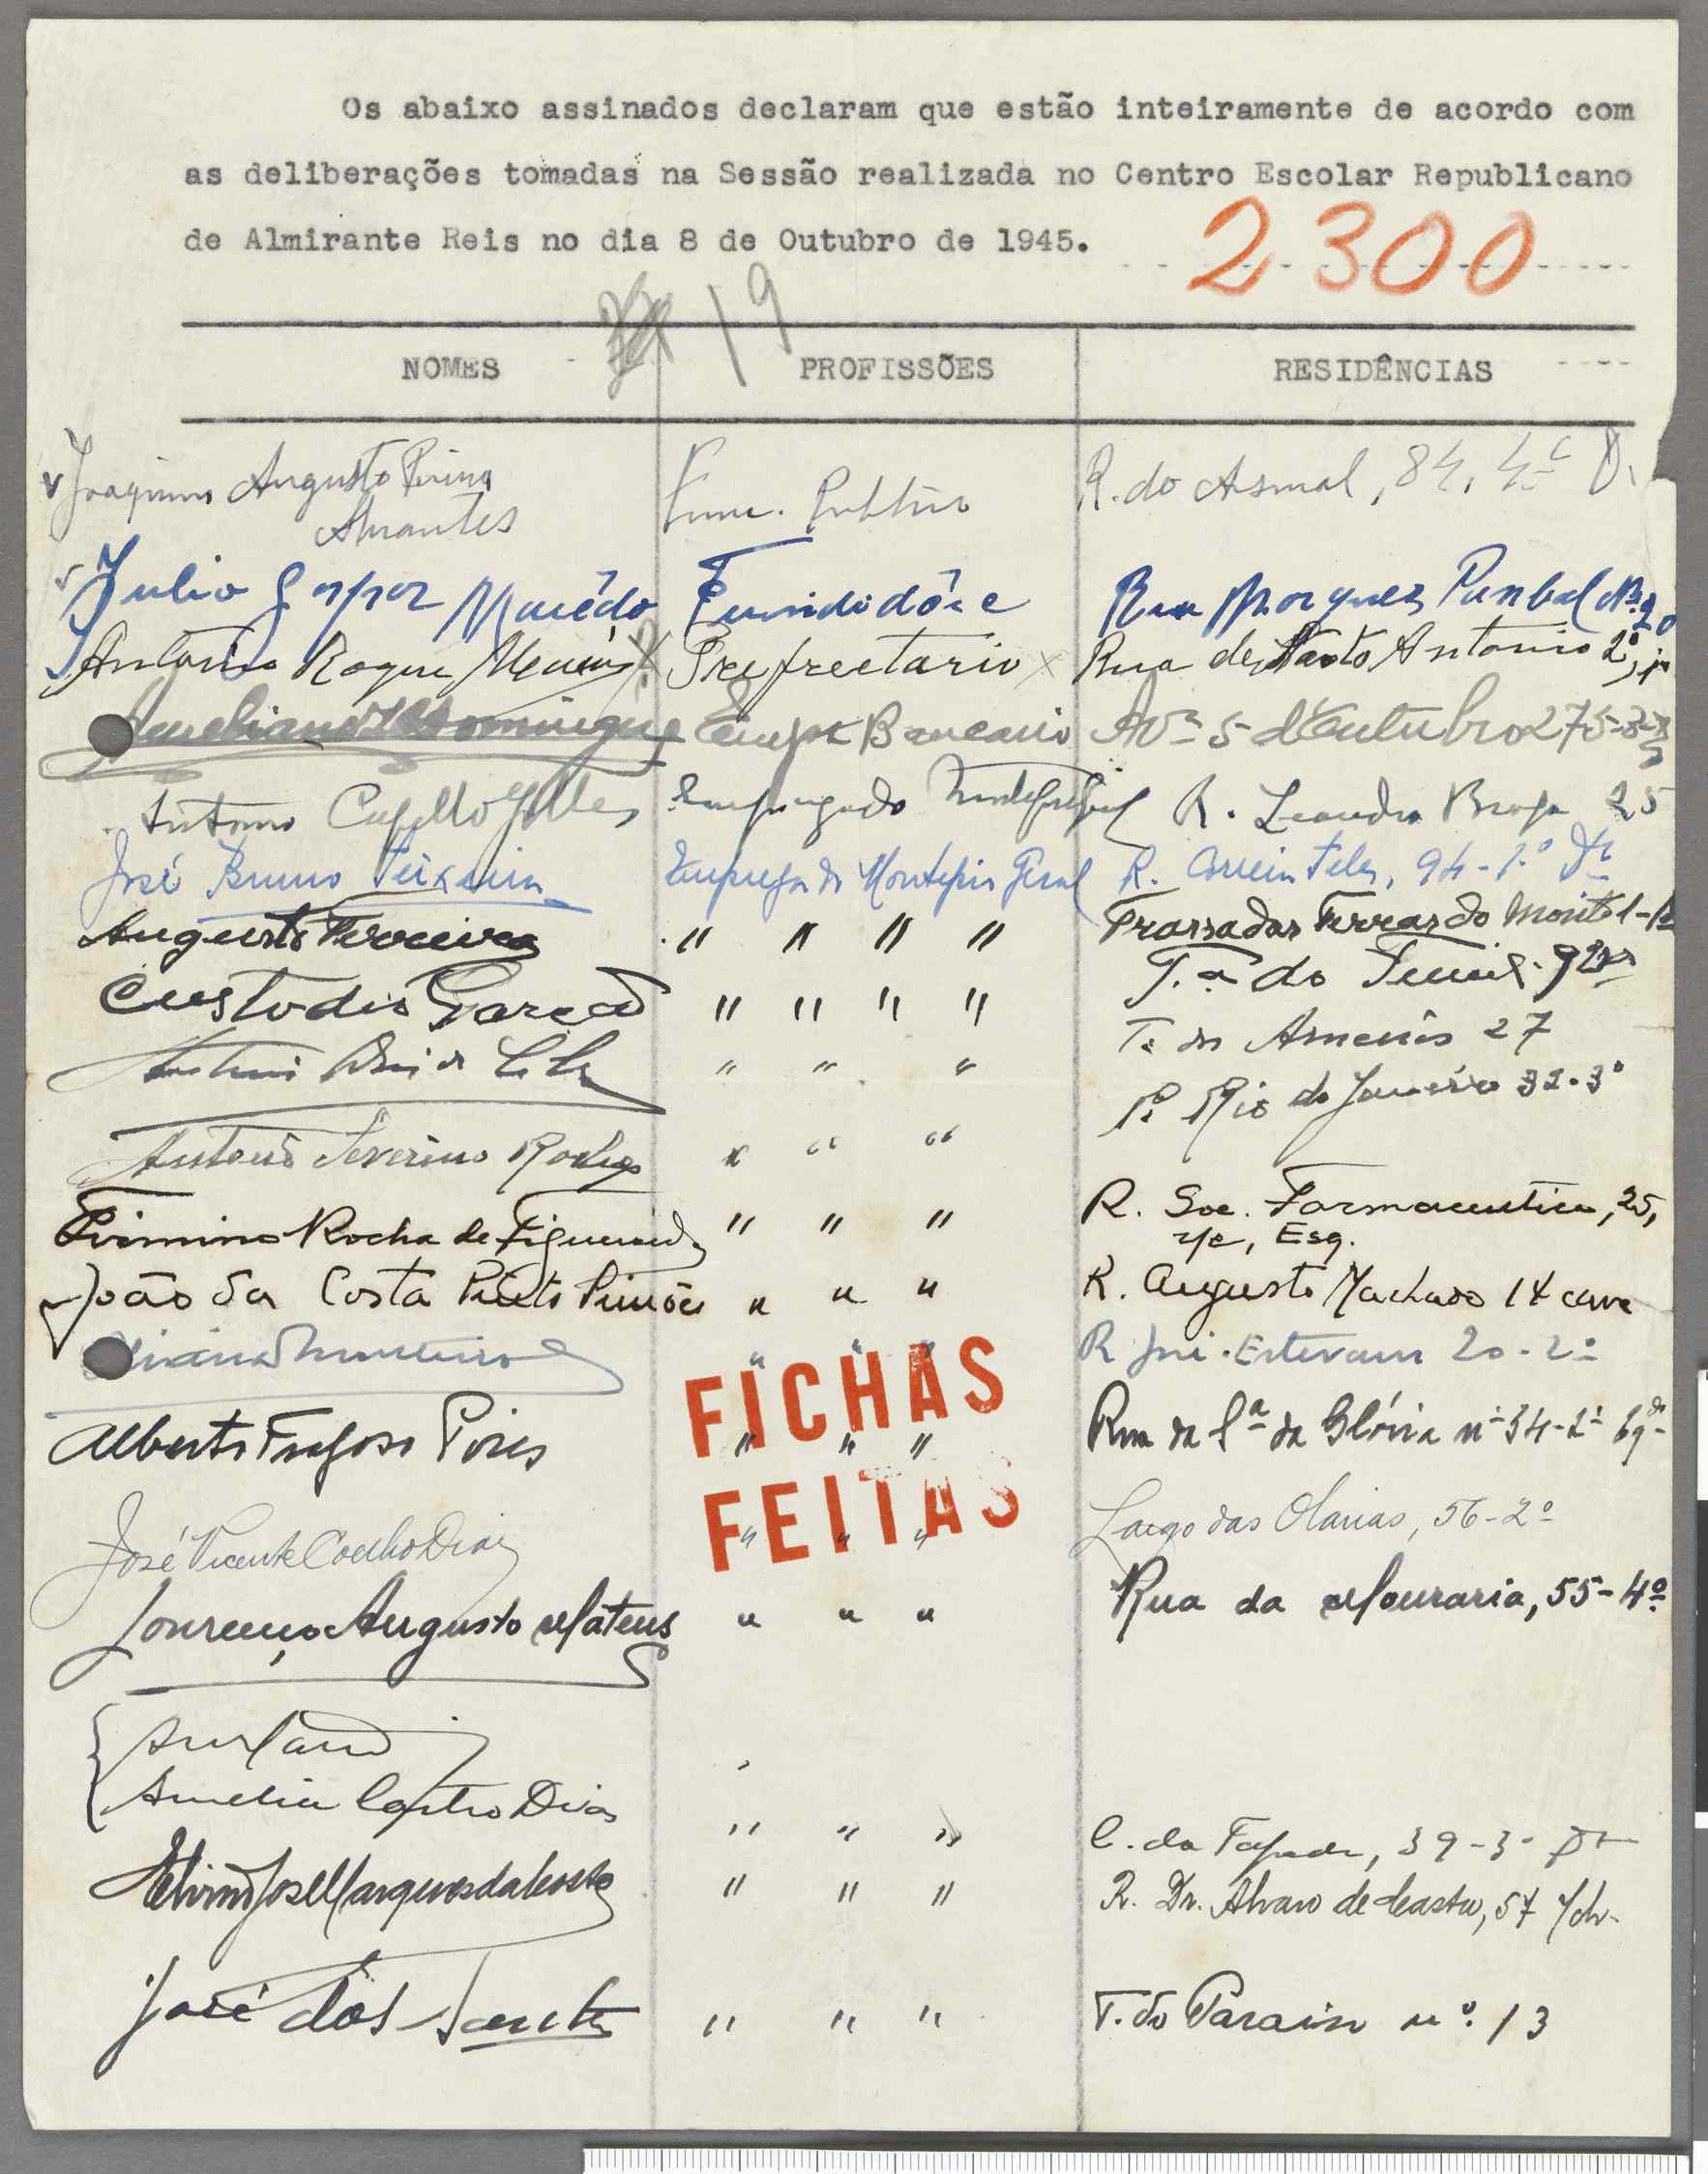 Os abaixo assinados declaram que estão inteiramente de acordo com
as deliberações tomadas na Sessão realizada no Centro Escolar Republicano
de Almirante Reis no dia 8 de Outubro de 1945.
2300
19
NOMES PROFISSÕES RESIDÊNCIAS
Joaquim Augusto Abrantes Func. R. do Asmal, 84, 4º D.
Julio Gaspar Macêdo Fundidôre Rua Marques Pombal Nº 20
Antonio Roque Rua de Santo Antonio 2º,
Domingues Bancario Avª 5 d'Outubro 275-3º
Antonio Capello Empregado R. Leandro Braga 25
José Bruno Teixeira Empregado Montepio Geral R. Correia Teles, 94-1º Dt
Augusto Ferreira " " " " Terras do Monte 1-
Custodio Garcao " " " " T.ª do
" " " T. do 27
" " R. Rio de Janeiro 32-3º
Antonio Severino " “ “
Firmino Rocha de Figueiredo " " " R. Soc. Farmaceutica, 25,
r/c, Esq.
João da Costa Pinto Simões " " " R. Augusto Machado 14 cave
" " " R José Estevam 20-2º
Alberto Fragoso Pires " " " Rua da Sª da Glória nº 34-2º
FICHAS
FEITAS
José Vicente Coelho Dias " " " Largo das Olarias, 56-2º
Lourenço Augusto Mateus " " " Rua da Mouraria, 55-4º
Amelia Castro Dias " " " C. da Tapada, 39-3º Dt
José Marques da Costa " " " R. Dr. Alvaro de Castro, 57
José dos Santos " " " T. do Paraiso nº 13